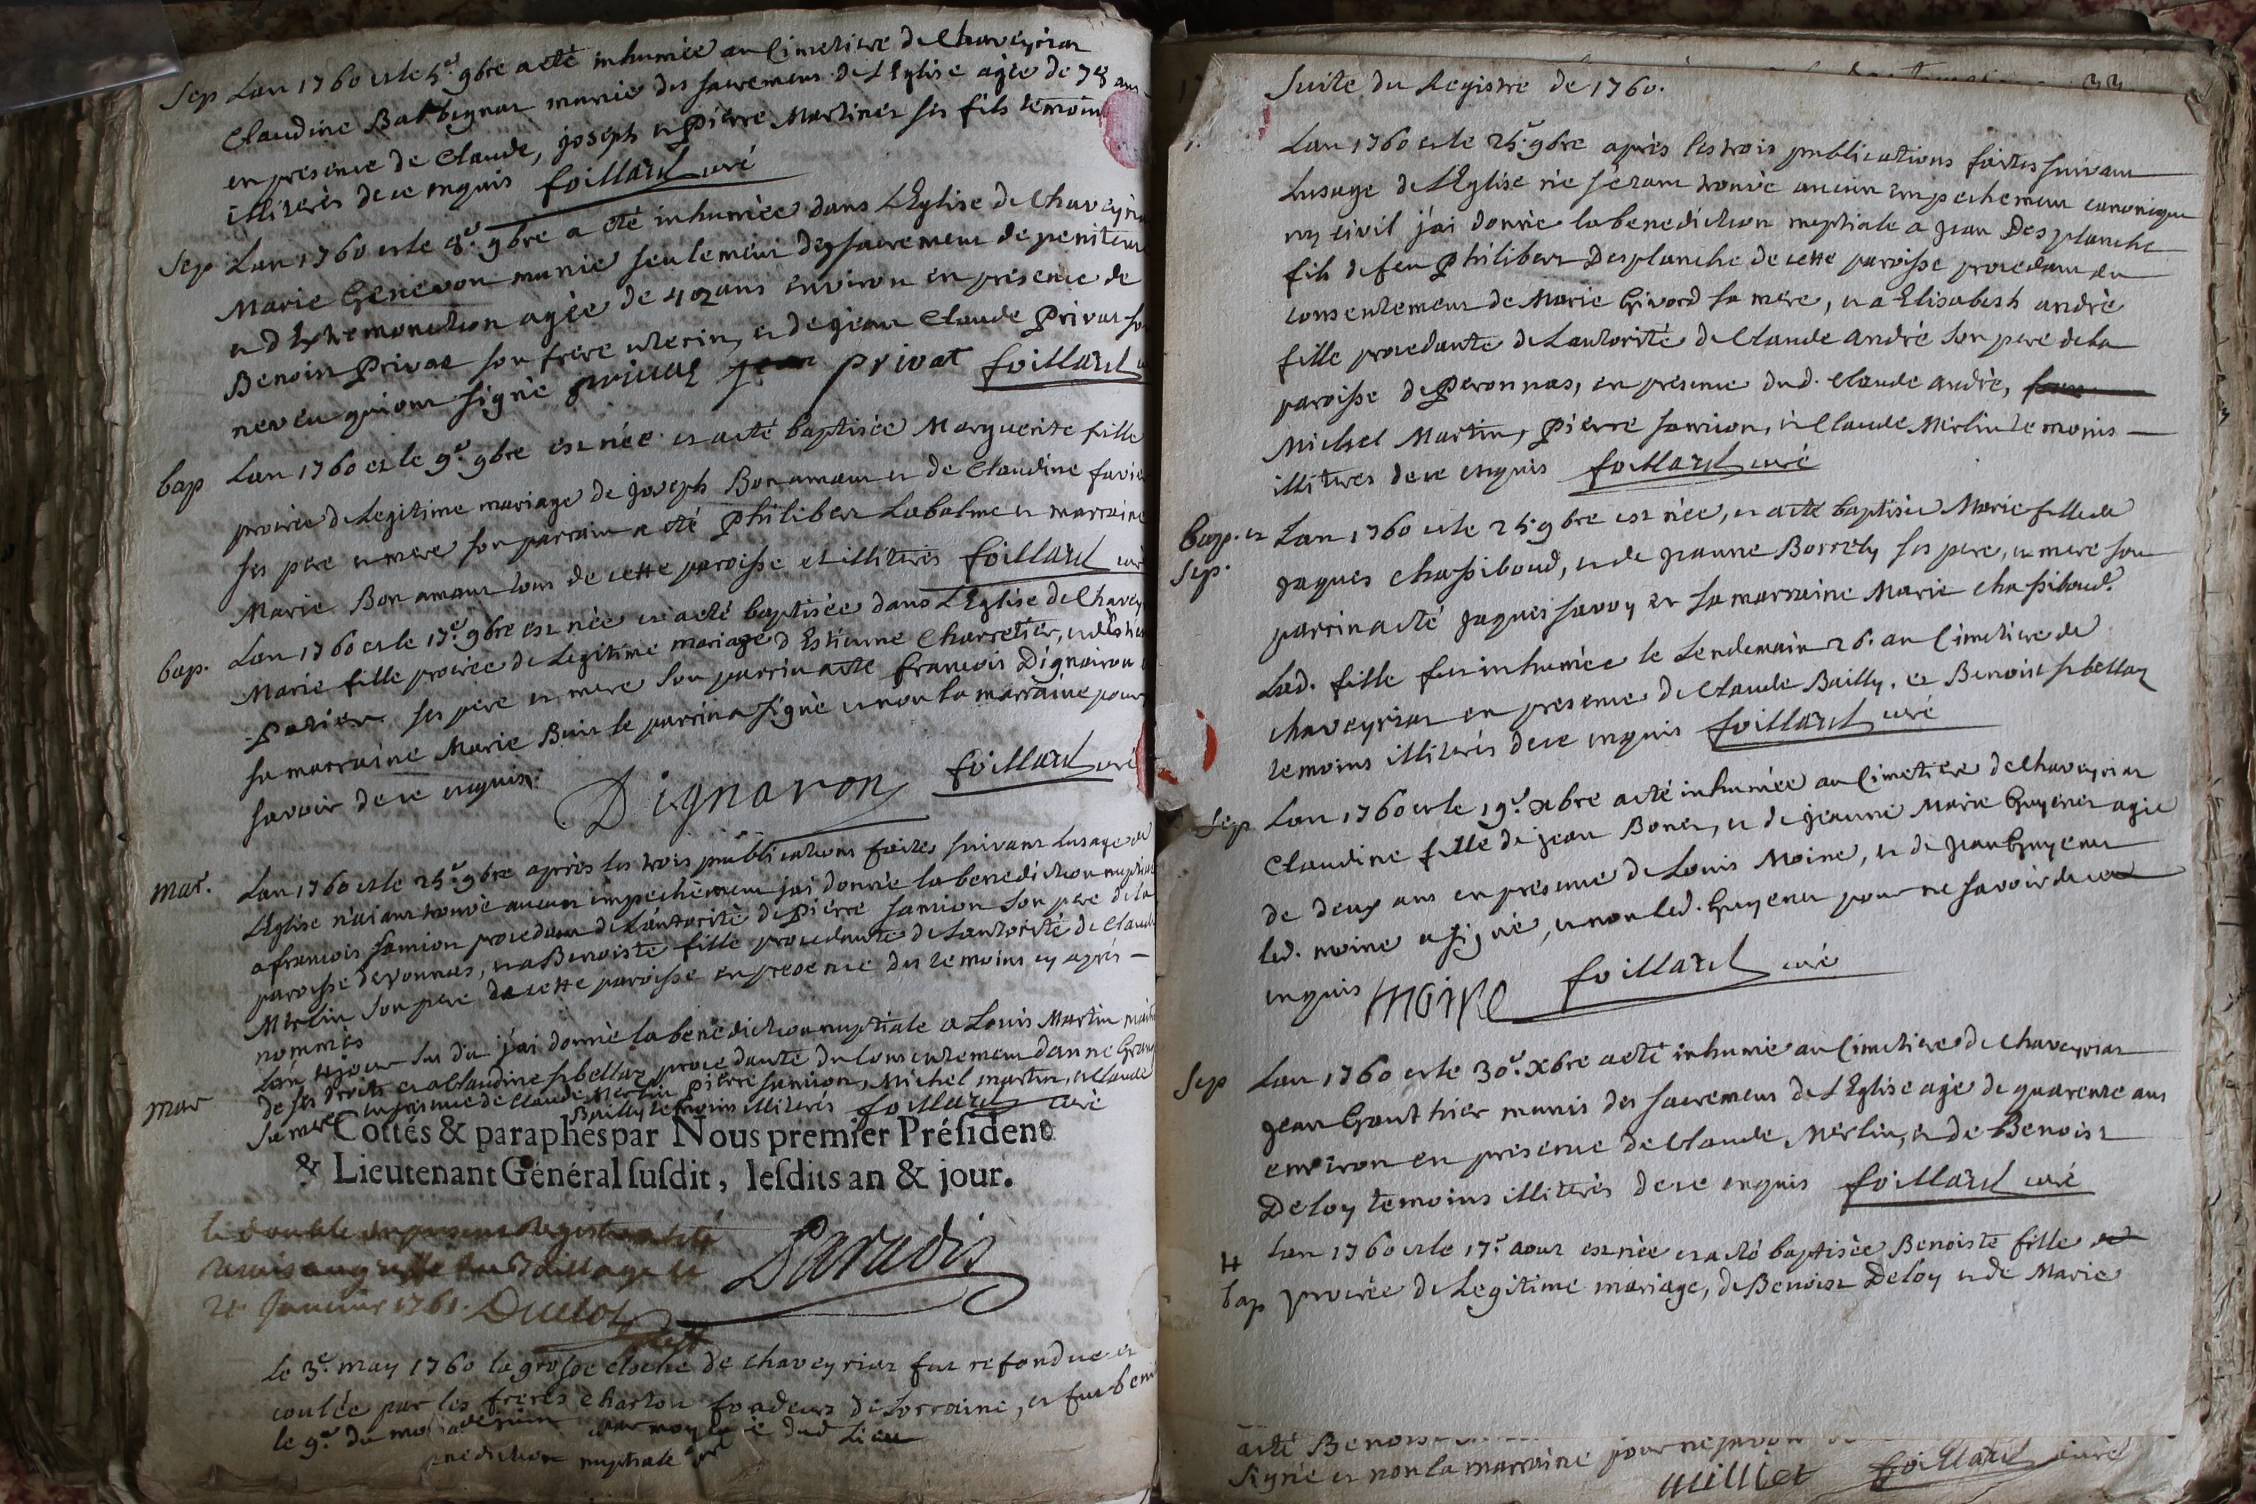 Sep Lan 1760 et le 5e. 9bre a eté inhumée au Cimetiere de Chaveyriat
Claudine Barbignat munie des sacremens de L'Eglise agée de 78 ans
en presence de Claude, joseph et Pierre Martinet ses fils temoins
illiterés de ce enquis foillard curé
Sep Lan 1760 et le 8e. 9bre a eté inhumée dans L'Eglise de Chaveyria
Marie Genevon munie seulement des sacremens de penitence
et d'Extremonction agée de 42 ans environ en presence de
Benoit Privat son frere uterin, et de jean Claude Privat son
neveu qui ont signé privat jean privat foillard
bap Lan 1760 et le 9e. 9bre est née et a eté baptisée Marguerite fille
procréée de Legitime mariage de joseph Bonamour et de Claudine favier
ses pere et mere son parrain a eté Philibert Labalme et marraine
Marie Bonamour tous de cette paroisse et illiterés foillard curé
bap. Lan 1760 et le 17e. 9bre est née et a eté baptisée dans L'Eglise de Chavey
Marie fille procréée de Legitime mariage d'Estienne Charretier, et d'
ses pere et mere son parrin a eté francois Dignairon
sa marraine Marie Buir le parrin a signé et non la marraine pour
savoir de ce enquis. Dignaron foillard curé
mar. Lan 1760 et le 25e. 9bre après les trois publications faites suivant Lusage de
L'Eglise n'aiant trouvé aucun impechement j'ai donnée la benediction nuptiale
a francois samion procedant de L'autorité de Pierre samion son pere de la
paroisse de vonnas, et a Benoiste fille procedante de L'autorité de Claude
Merlin son pere de cette paroisse en presence des temoins cy après
nommés
mar Lan et jour sus dit j'ai donnée la benediction nuptiale a Louis Martin maitre
de ses droits et a Claudine sibellas procedante du consentement danne
sa mere en presence de Claude Merlin, pierre samion, Michel martin, et Claude
Bailly temoins illiterés foillard curé
Cottés & paraphés par Nous premier Préſident
& Lieutenant Général ſuſdit, leſdits an & jour.
le double du present Registre a eté
remis au greffe du Bailliage le
21 Janvier 1761. Duclos
Paradis
le 3e. may 1760 la grosse cloche de chaveyriat fut refondue et
coulée par les freres charton fondeurs de Lorraine, et fut benite
le 9e. du mois par moy curé dud. Lieu
nediction nuptiale
Suite du Registre de 1760. 33
Lan 1760 et le 25e. 9bre après les trois publications faites suivant
Lusage de L'Eglise ne s'etant trouvé aucun empechement canonique
ny civil j'ai donnée la benediction nuptiale a jean Desplanche
fils de feu Philibert Desplanche de cette paroisse procedant du
consentement de Marie Givord sa mere, et a Elisabeth andré
fille procedante de L'autorité de Claude André son pere de la
paroisse de Peronnas, en presence dud. Claude andré,
Michel Martin, Pierre samion, et Claude Merlin temoins
illiteres de ce enquis foillard curé
bap. et Lan 1760 et le 25. 9bre est née, et a eté baptisée Marie fille de
Sep. jaques chassiboud, et de jeanne Borrely ses pere, et mere son
parrin a eté jaques savoy et sa marraine Marie chassiboud.
Lad. fille fut inhumée le Lendemain 26. au Cimetiere de
chaveyriat en presence de Claude Bailly, et Benoist sibellas
temoins illiterés de ce enquis foillard curé
Sep Lan 1760 et le 19e. xbre a eté inhumée au Cimetiere de Chaveyriat
Claudine fille de jean Bonet, et de jeanne Marie Guyenet agée
de deux ans en presence de Louis Moine, et de jean Guyenet
led. moine a signé, et non led. Guyenet pour ne savoir de ce
enquis moine foillard curé
Sep Lan 1760 et le 30e. xbre a eté inhumé au Cimetiere de Chaveyriat
jean Gouthier munis des sacremens de L'Eglise agé de quarente ans
environ en presence de Claude Merlin, et de Benoist
Deloy temoins illiterés de ce enquis foillard curé
Lan 1760 et le 17e. aout est née et a eté baptisée Benoiste fille
bap procréée de Legitime mariage, de Benoist Deloy et de Marie
a eté Benoist
Signée et non la marraine pour ne savoir
milliet foillard curé